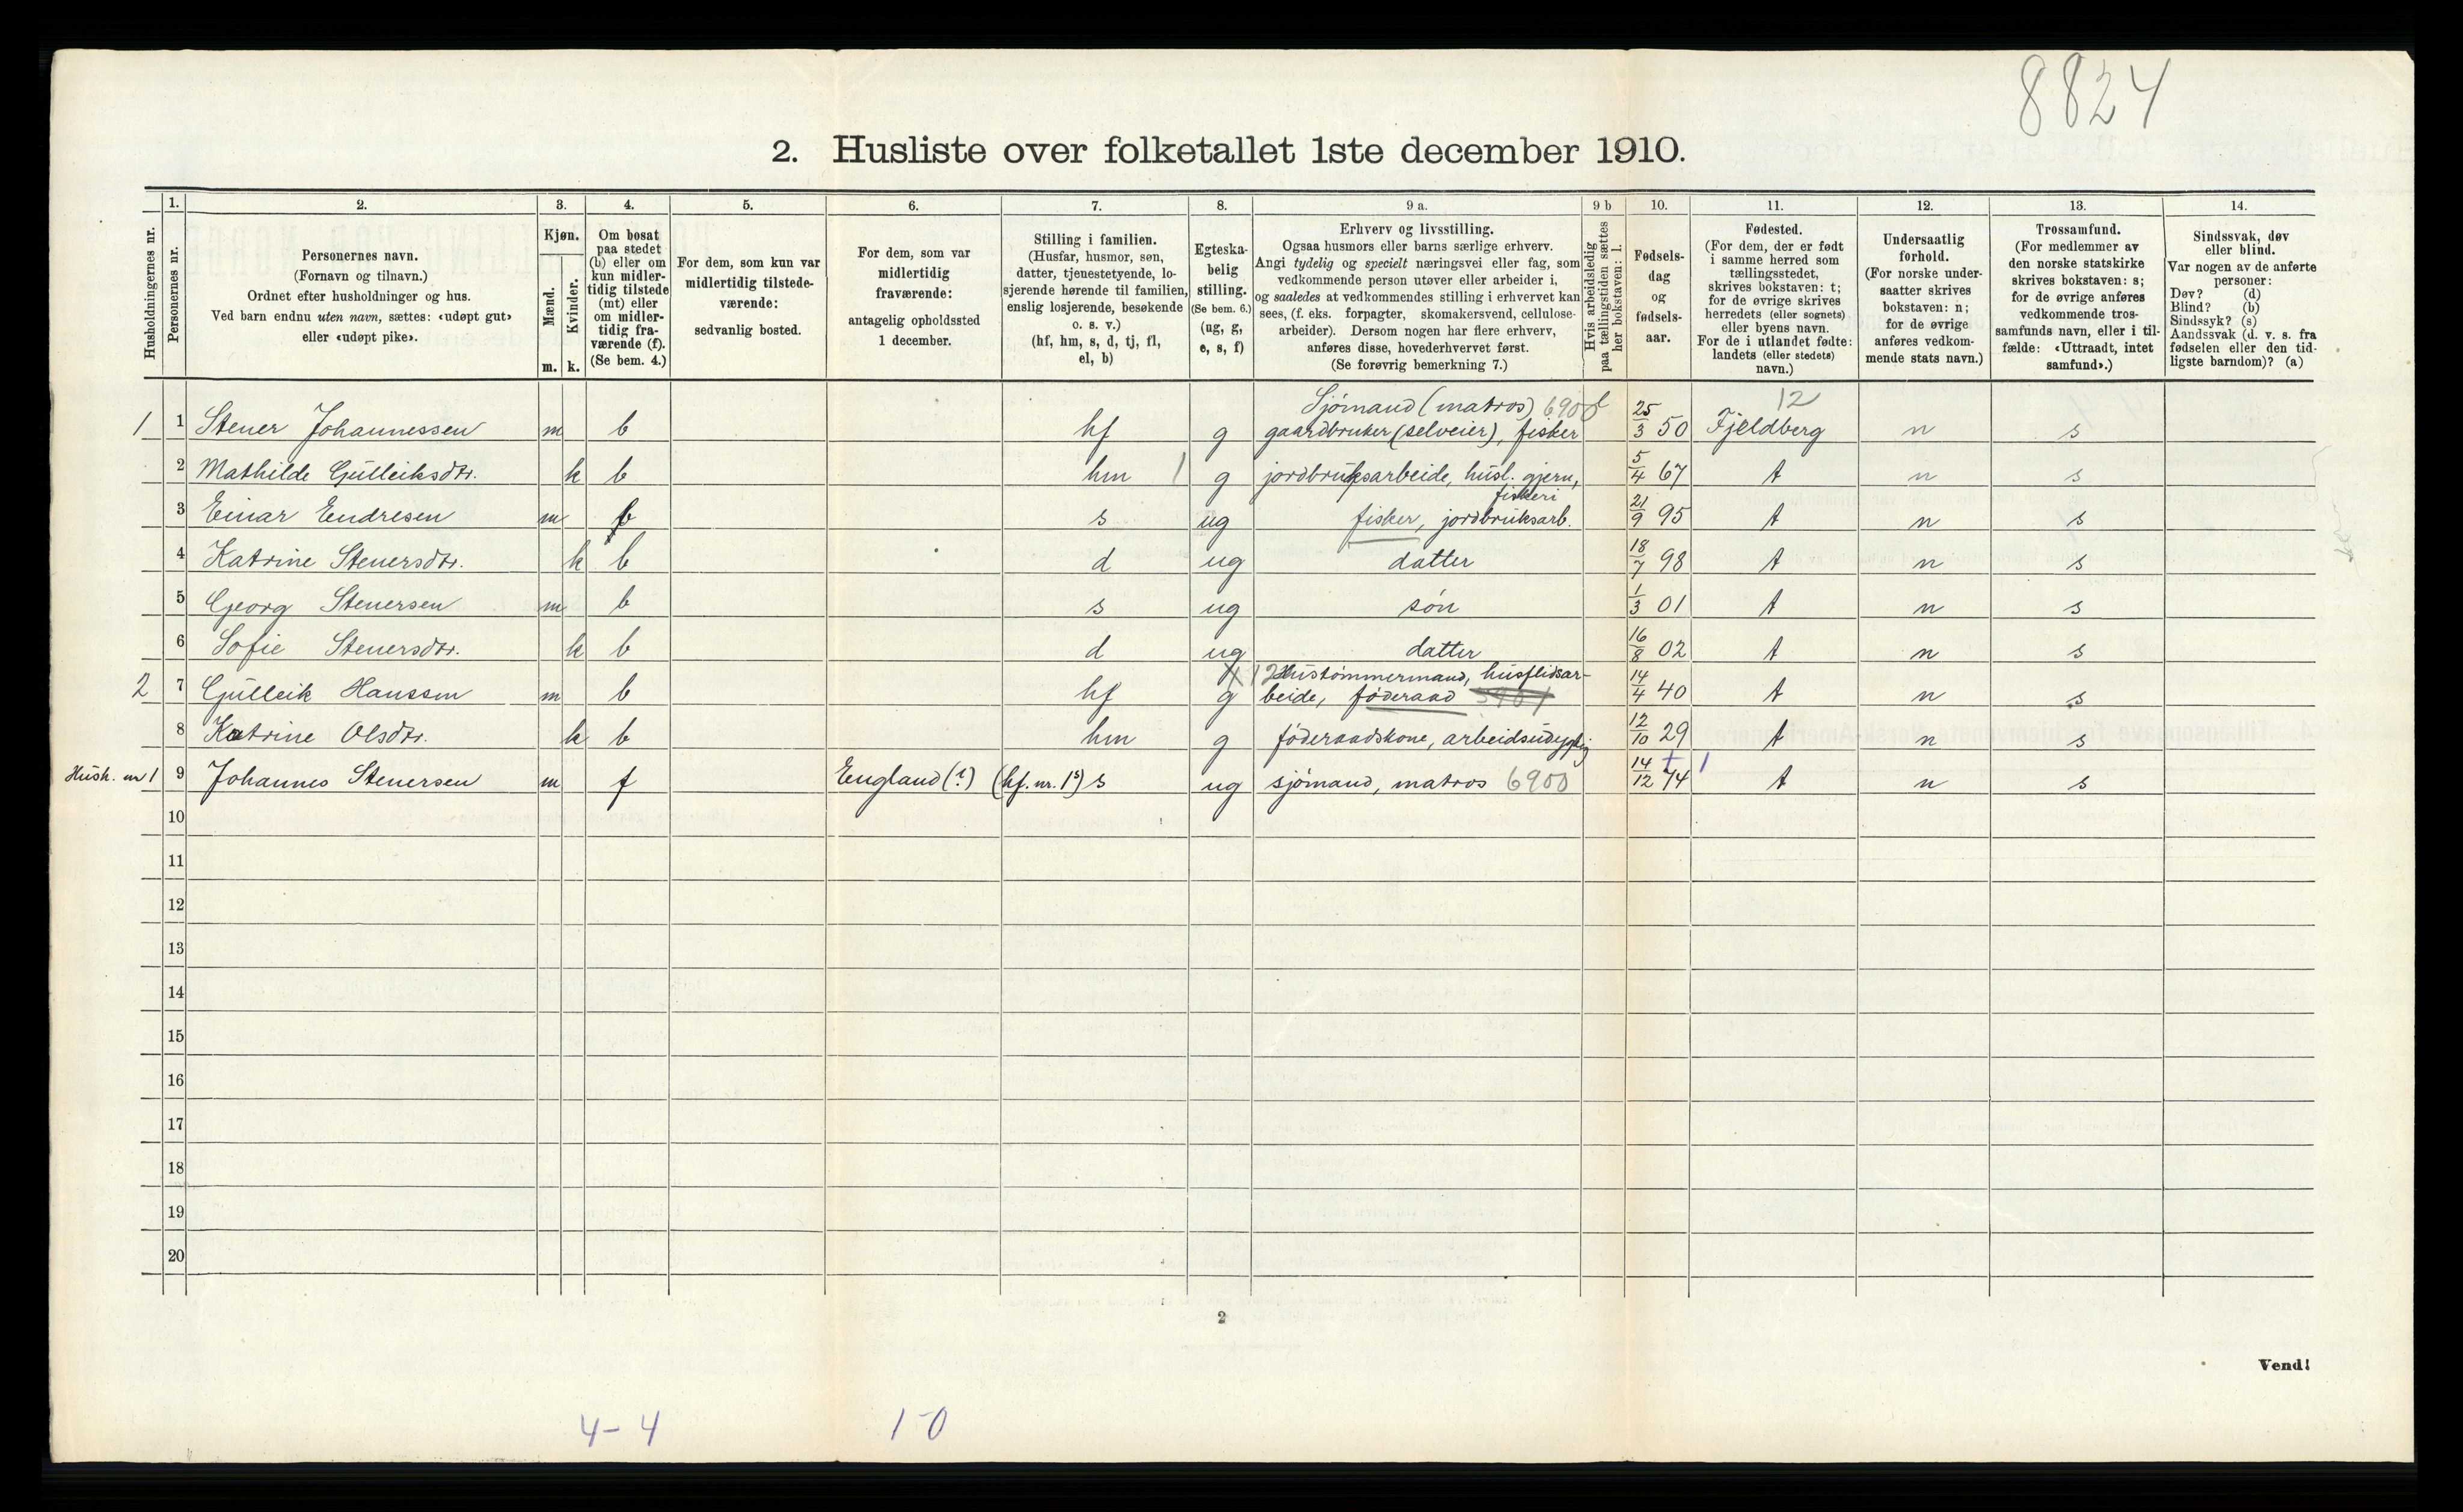 8824
2. Husliste over folketallet 1ste december 1910.
Husholdningernes nr.
1. Personernes nr.
2. Personernes navn.
(Fornavn og tilnavn.)
Ordnet efter husholdninger og hus.
Ved barn endnu uten navn, sættes: «udøpt gut»
eller «udøpt pike».
3. Kjøn.
Mænd. m.
Kvinder. k.
4. Om bosat
paa stedet
(b) eller om
kun midler-
tidig tilstede
(mt) eller
om midler-
tidig fra-
værende (f).
(Se bem. 4.)
5. For dem, som kun var
midlertidig tilstede-
værende:
sedvanlig bosted.
6. For dem, som var
midlertidig
fraværende:
antagelig opholdssted
1 december.
7. Stilling i familien.
(Husfar, husmor, søn,
datter, tjenestetyende, lo-
sjerende hørende til familien,
enslig losjerende, besøkende
o. s. v.)
(hf, hm, s, d, tj, fl,
el, b)
8. Egteska-
belig
stilling.
(Se bem. 6.)
(ug, g,
e, s, f)
9 a. Erhverv og livsstilling.
Ogsaa husmors eller barns særlige erhverv.
Angi tydelig og specielt næringsvei eller fag, som
vedkommende person utøver eller arbeider i,
og saaledes at vedkommendes stilling i erhvervet kan
sees, (f. eks. forpagter, skomakersvend, cellulose-
arbeider). Dersom nogen har flere erhverv,
anføres disse, hovederhvervet først.
(Se forøvrig bemerkning 7.)
9 b Hvis arbeidsledig
paa tællingstiden sættes
her bokstaven: l.
10. Fødsels-
dag
og
fødsels-
aar.
11. Fødested.
(For dem, der er født
i samme herred som
tællingsstedet,
skrives bokstaven: t;
for de øvrige skrives
herredets (eller sognets)
eller byens navn.
For de i utlandet fødte:
landets (eller stedets)
navn.)
12. Undersaatlig
forhold.
(For norske under-
saatter skrives
bokstaven: n;
for de øvrige
anføres vedkom-
mende stats navn.)
13. Trossamfund.
(For medlemmer av
den norske statskirke
skrives bokstaven: s;
for de øvrige anføres
vedkommende tros-
samfunds navn, eller i til-
fælde: «Uttraadt, intet
samfund».)
14. Sindssvak, døv
eller blind.
Var nogen av de anførte
personer:
Døv? (d)
Blind? (b)
Sindssyk? (s)
Aandssvak (d. v. s. fra
fødselen eller den tid-
ligste barndom)? (a)
Sjömand (matros) 6900 12
1 1 Stener Johannessen m b hf g gaardbruker (selveier), fisker 25/3 50 Fjeldberg n s
2 Mathilde Gulleiksdtr. k b hm 1 g jordbruksarbeide, husl. gjern, fiskeri 5/4 67 t n s
3 Einar Endresen m b s ug fisker, jordbruksarb. 21/9 95 t n s
4 Katrine Stenersdtr. k b d ug datter 18/7 98 t n s
5 Georg Stenersen m b s ug sön 1/3 01 t n s
6 Sofie Stenersdtr. k b d ug datter 16/8 02 t n s
X12 Hustömmermand, husflidsar-
2 7 Gulleik Hanssen m b hf g beide, föderaad 14/4 40 t n s
8 Katrine Olsdtr. k b hm g föderaadskone, arbeidsudygtig 12/10 29 t n s
Hush. nr 1 9 Johannes Stenersen m f England (?) (hf. nr. 1s) s ug sjömand, matros 6900 14/12 74 t n s
10
11
12
13
14
15
16
17
18
19
20
2
Vend!
4-4 1-0